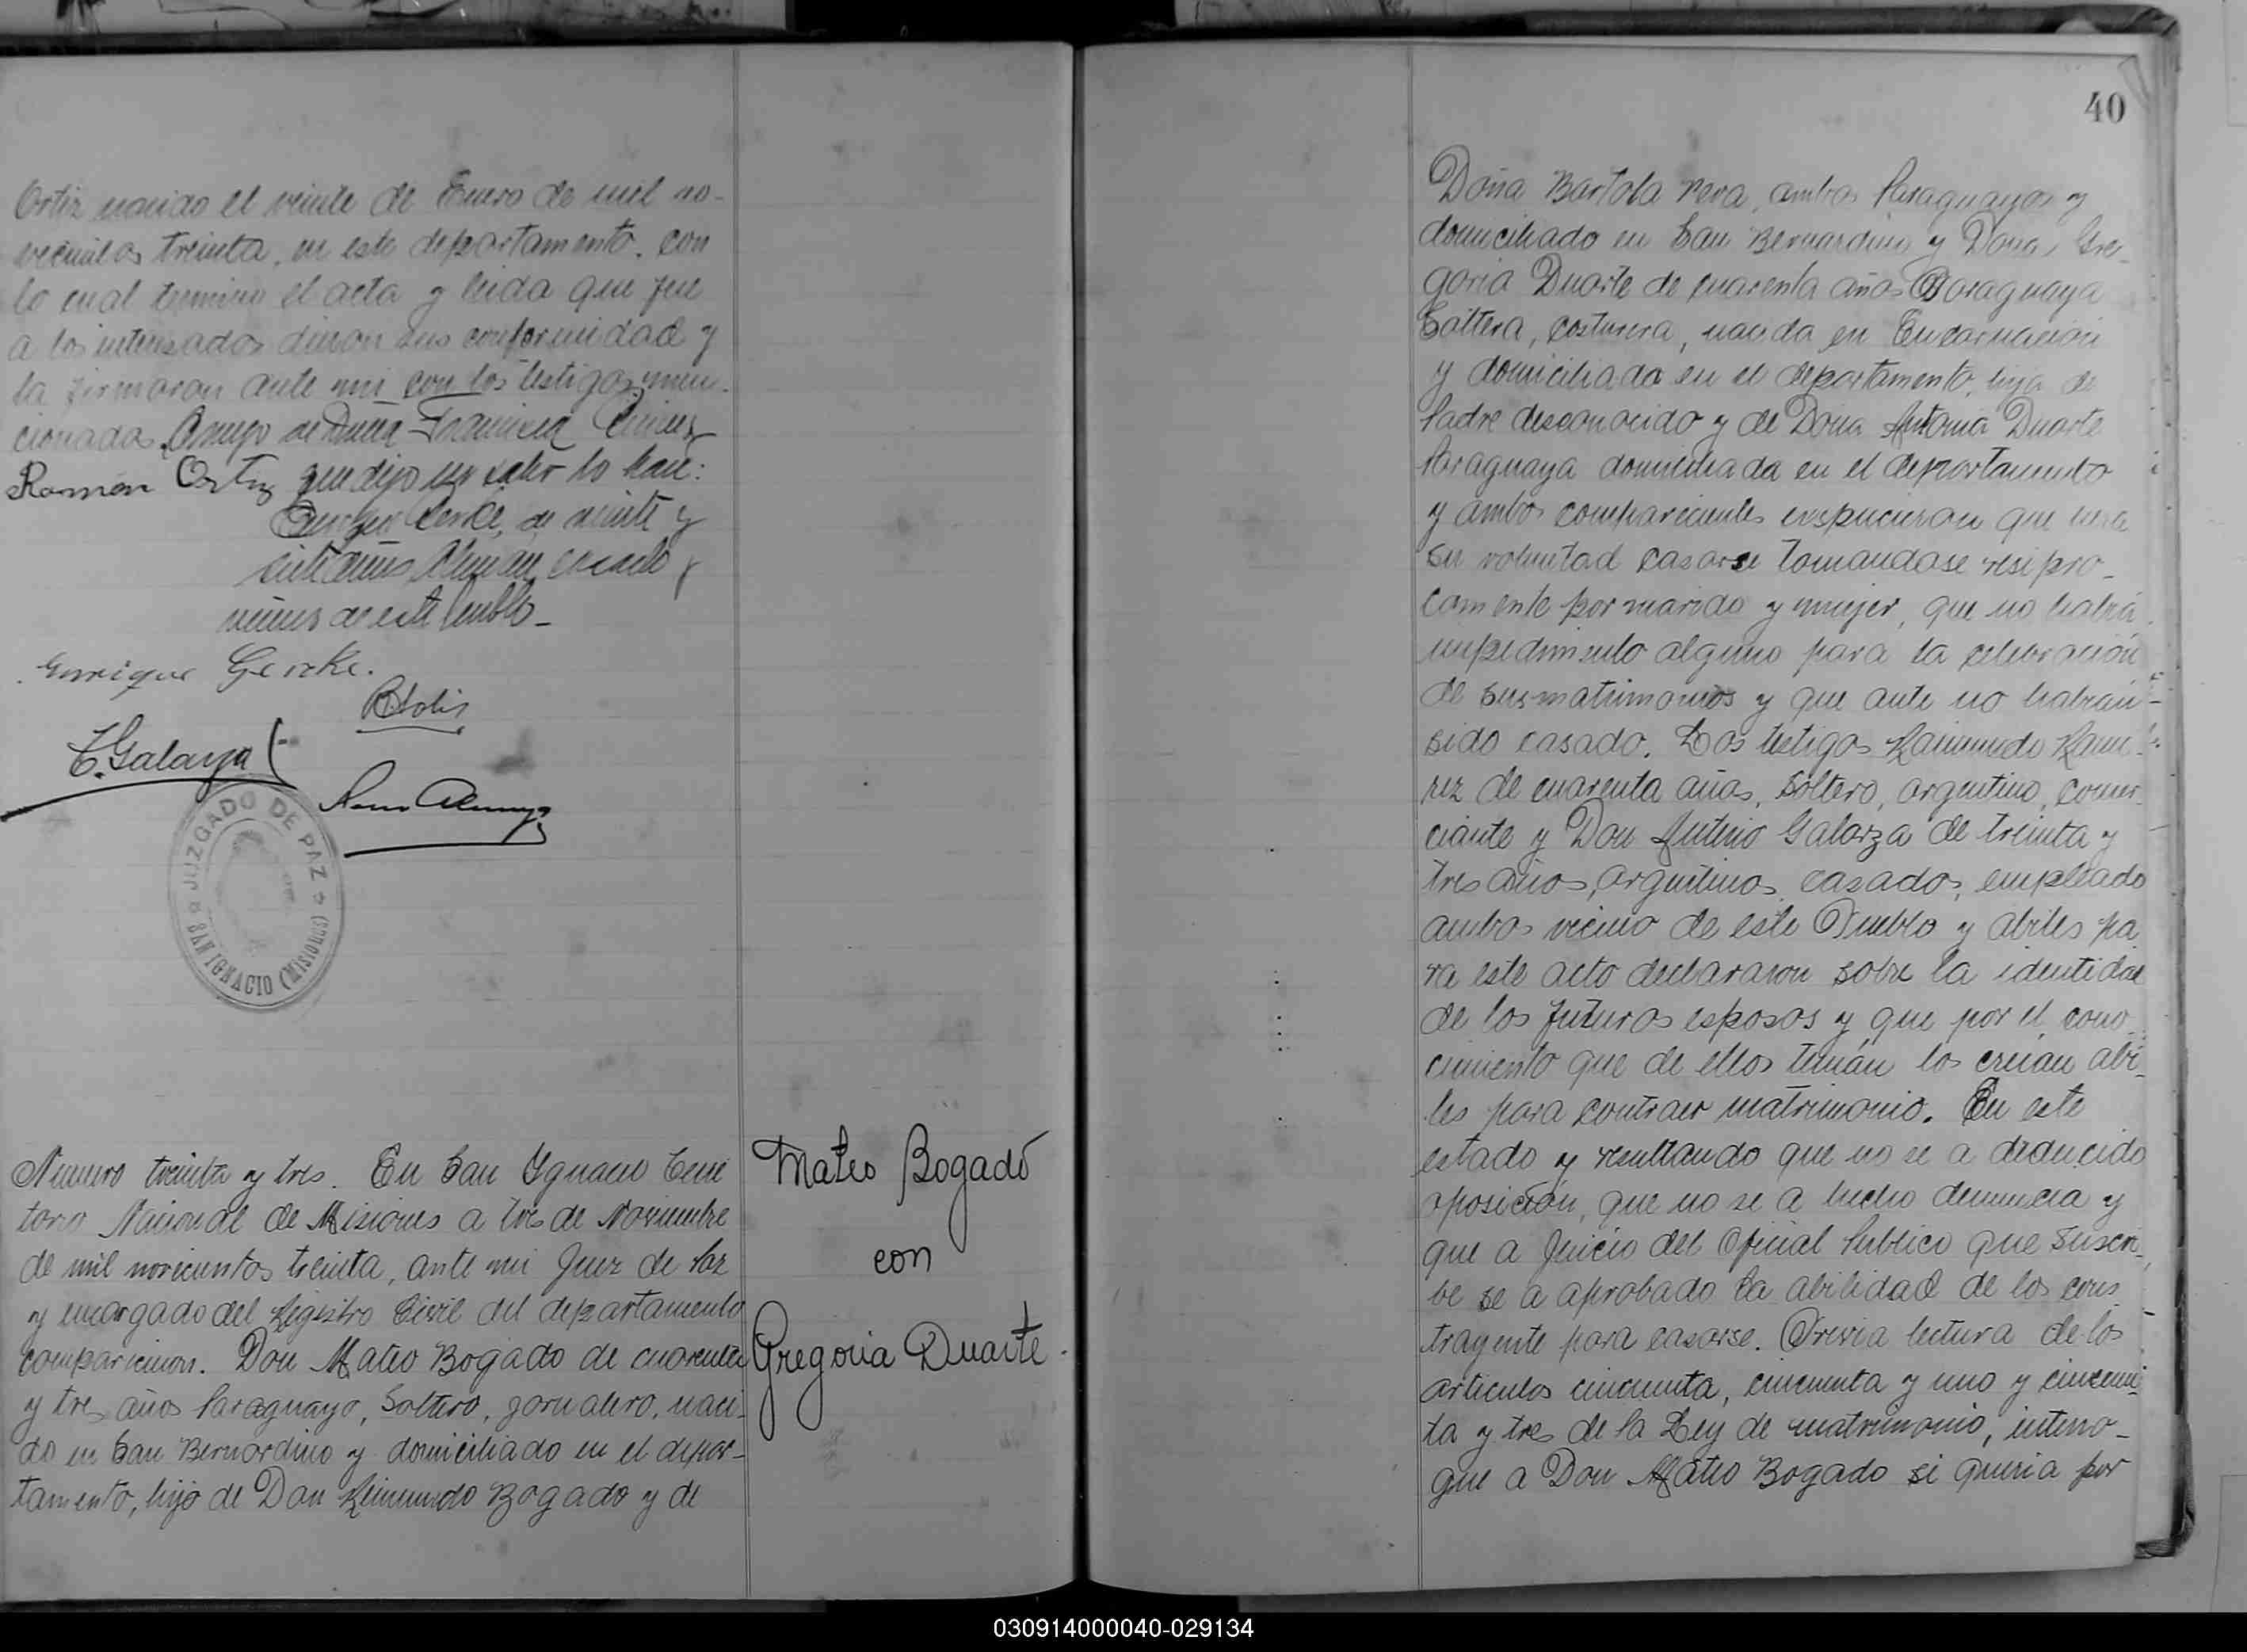 Ortiz nacido el veinte de Enero de mil no-
vecientos treinta, en este departamento. Con
lo cual termino el acta y leida que fue
a los interesados dieron sus conformidad y
la firmaron ante mi con los testigos men-
cionados. A ruego de Doña Francisca
Román Ortiz que dijo no saber lo hace:
de veinte y
siete años Aleman, casado y
vecino de este Pueblo-
Enrique Gerke.
RSolis
C. Galarza
JUZGADO DE PAZ
SAN IGNACIO (MISIONES)
Numero treinta y tres. En San Ygnacio Terri
torio Nacional de Misiones a tres de Noviembre
de mil novecientos treinta, ante mi Juez de Paz
y encargado del Registro Civil del departamento
comparecieron. Don Mateo Bogado de cuarenta
y tres años Paraguayo, Soltero, jornalero, naci-
do en San Bernardino y domiciliado en el depar-
tamento, hijo de Don Reimundo Bogado y de
Mateo Bogado
con
Gregoria Duarte.
40
Doña Bartola Vera, ambos Paraguayos y
domiciliado en San Bernardino y Dona Gre-
goria Duarte de cuarenta años Paraguaya
Soltera, costurera, nacida en Encarnación
y domiciliada en el departamento, hija de
Padre desconocido y de Doña Antonia Duarte
Paraguaya domiciliada en el departamento
y ambos comparecientes expucieron que hera
su voluntad casarse tomandose resipro-
camente por marido y mujer, que no habia
impedimento alguno para la celebración
de sus matrimonios y que ante no habian
sido casado. Los testigos Raimundo Rami-
rez de cuarenta años, soltero, argentino, comer-
ciante y Don Galarza de treinta y
tres años, argentinos, casados, empleado
ambos vecino de este Pueblo y abiles pa
ra este acto declararon sobre la identidad
de los futuros esposos y que por el cono-
cimiento que de ellos tenían los creían abi-
les para contraer matrimonio. En este
estado y resultando que no se a deducido
oposición, que no se a hecho denuncia y
que a Juicio del Oficial Publico que suscri-
be se a aprobado la abilidad de los cons
trayente para casarse. Previa lectura de los
articulos cincuenta, cincuenta y uno y cincuen-
ta y tres de la Ley de matrimonio, interro-
gue a Don Mateo Bogado si queria por
030914000040-029134